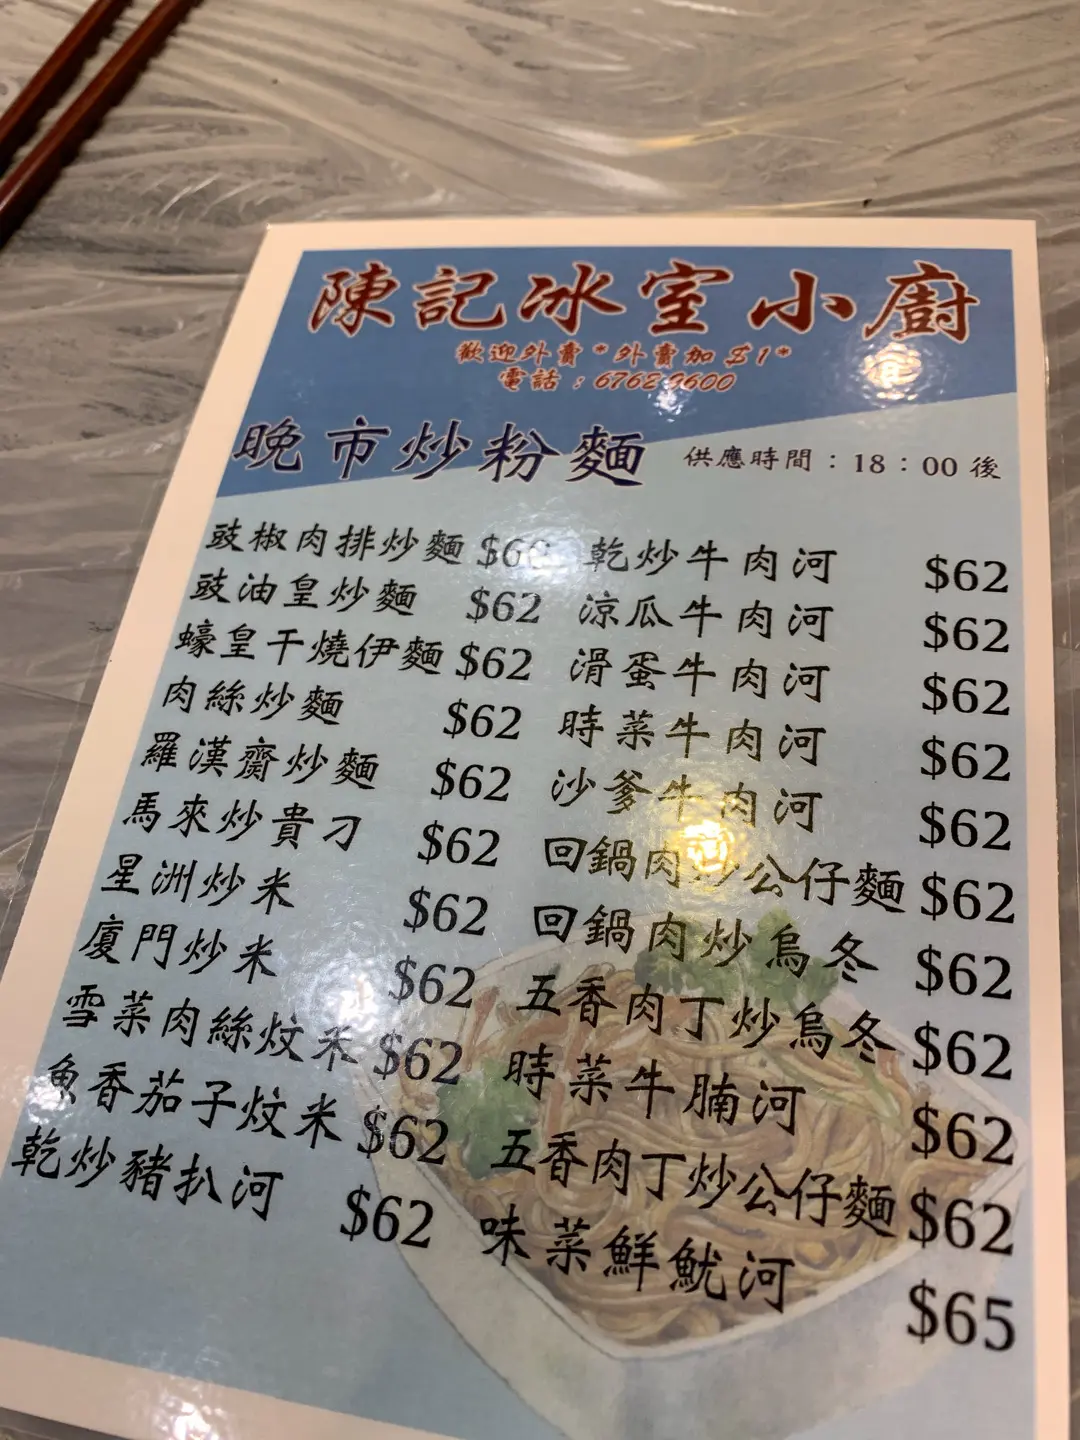 陳記冰室小廚
歡迎外賣*外賣加$1*
電話：6762 9600
晚市炒粉麵
供應時間：18：00後
豉椒肉排炒麵
豉油皇炒麵 $62
蠔皇干燒伊麵 $62
肉絲炒麵 $62
羅漢齋炒麵 $62
馬來炒貴刁 $62
星洲炒米 $62
廈門炒米 $62
雪菜肉絲炆米 $62
魚香茄子炆米 $62
乾炒豬扒河 $62
乾炒牛肉河 $62
涼瓜牛肉河 $62
滑蛋牛肉河 $62
時菜牛肉河 $62
沙爹牛肉河 $62
回鍋肉炒公仔麵 $62
回鍋肉炒烏冬 $62
五香肉丁炒烏冬 $62
時菜牛腩河 $62
五香肉丁炒公仔麵 $62
味菜鮮魷河 $65